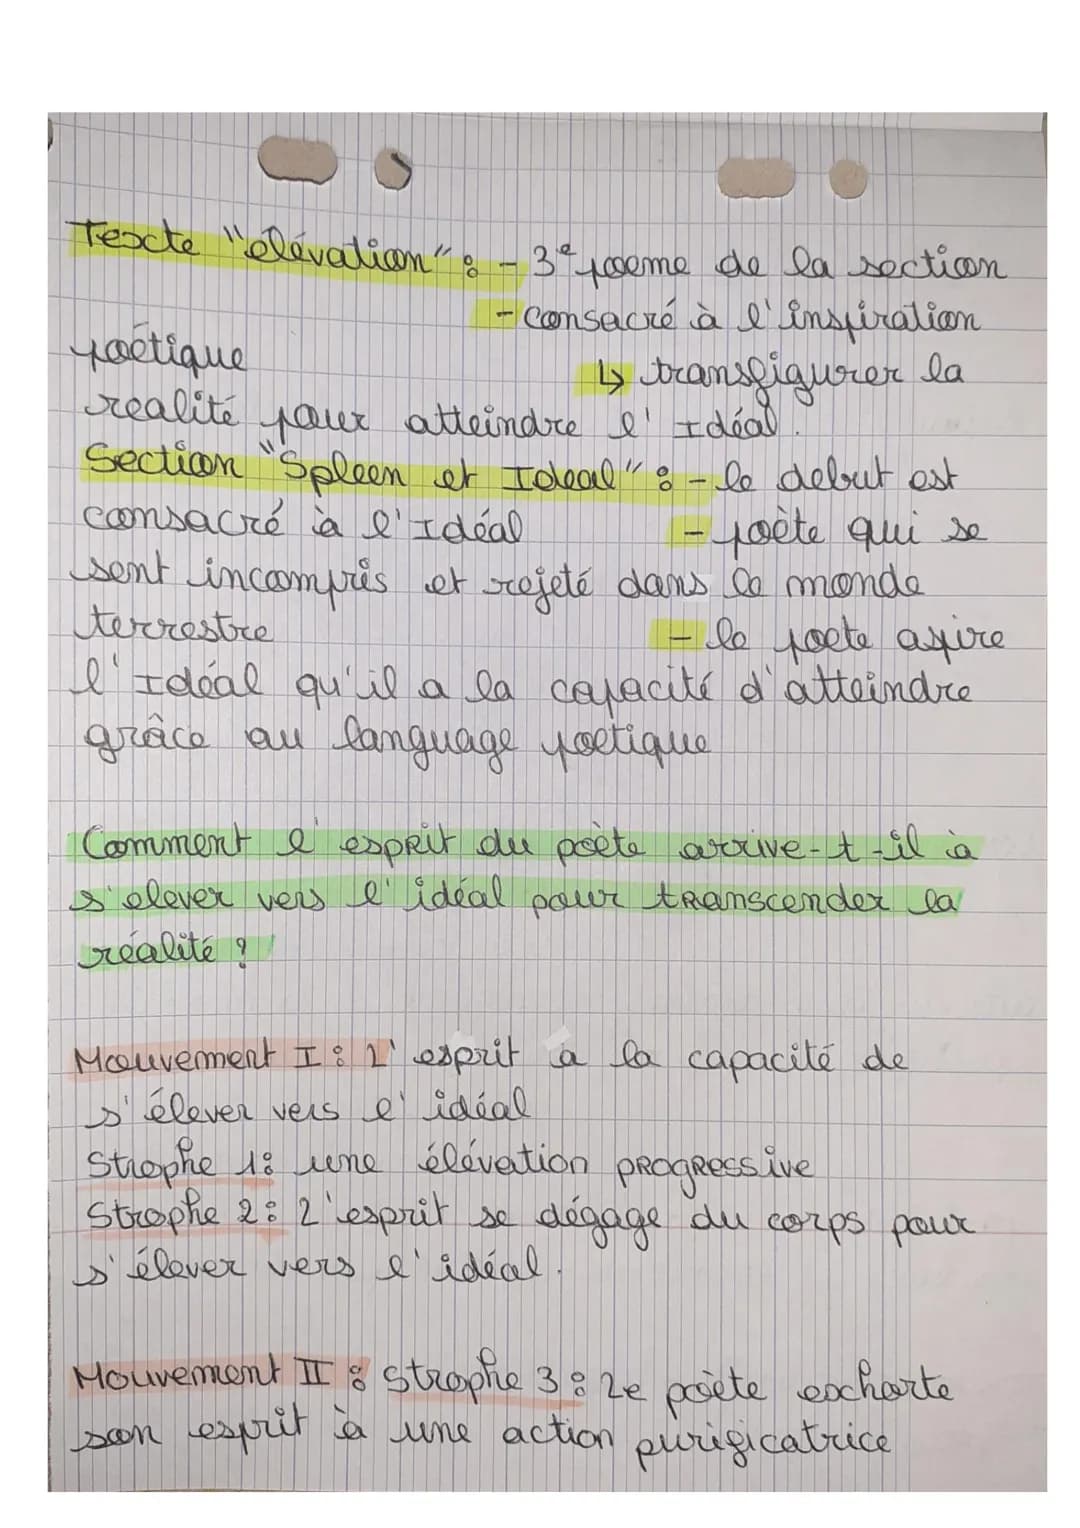 Texte "élévation" : - 3e poeme de la section
- consacré à l'inspiration
poétique ↳ transfigurer la
realité pour atteindre l'Idéal.
Section "Spleen et Ideal" : - le debut est
consacré à l'Idéal - poète qui se
sent incompris et rejeté dans le monde
terrestre - le poete aspire
l'Idéal qu'il a la capacité d'atteindre
grâce au language poetique
Comment l'esprit du poète arrive-t-il à
s'elever vers l'idéal pour transcender la
réalité ?
Mouvement I : L'esprit a la capacité de
s'élever vers l'idéal
Strophe 1 : une élévation progressive
Strophe 2 : L'esprit se dégage du corps pour
s'élever vers l'idéal.
Mouvement II : Strophe 3 : Le poète exhorte
son esprit à une action purificatrice